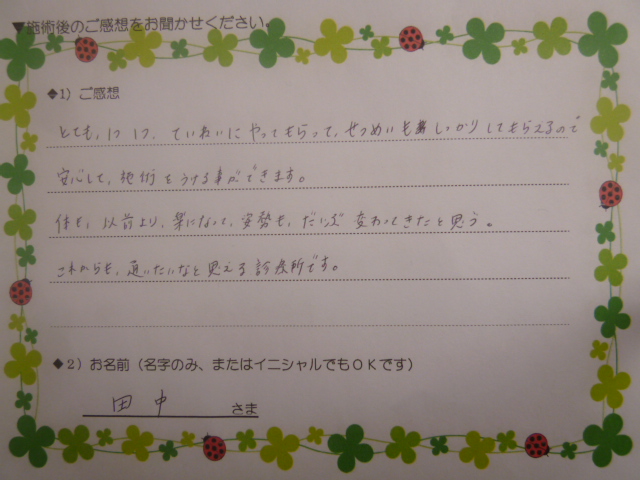 ▼施術後のご感想をお聞かせください。
◆1）ご感想
とても、1つ1つ、ていねいにやってもらって、せつめいもしっかりしてもらえるので
安心して、施術をうける事ができます。
体も、以前より、楽になって、姿勢も、だいぶ変わってきたと思う。
これからも、通いたいなと思える診療所です。
◆2）お名前（名字のみ、またはイニシャルでもＯＫです）
田中 さま